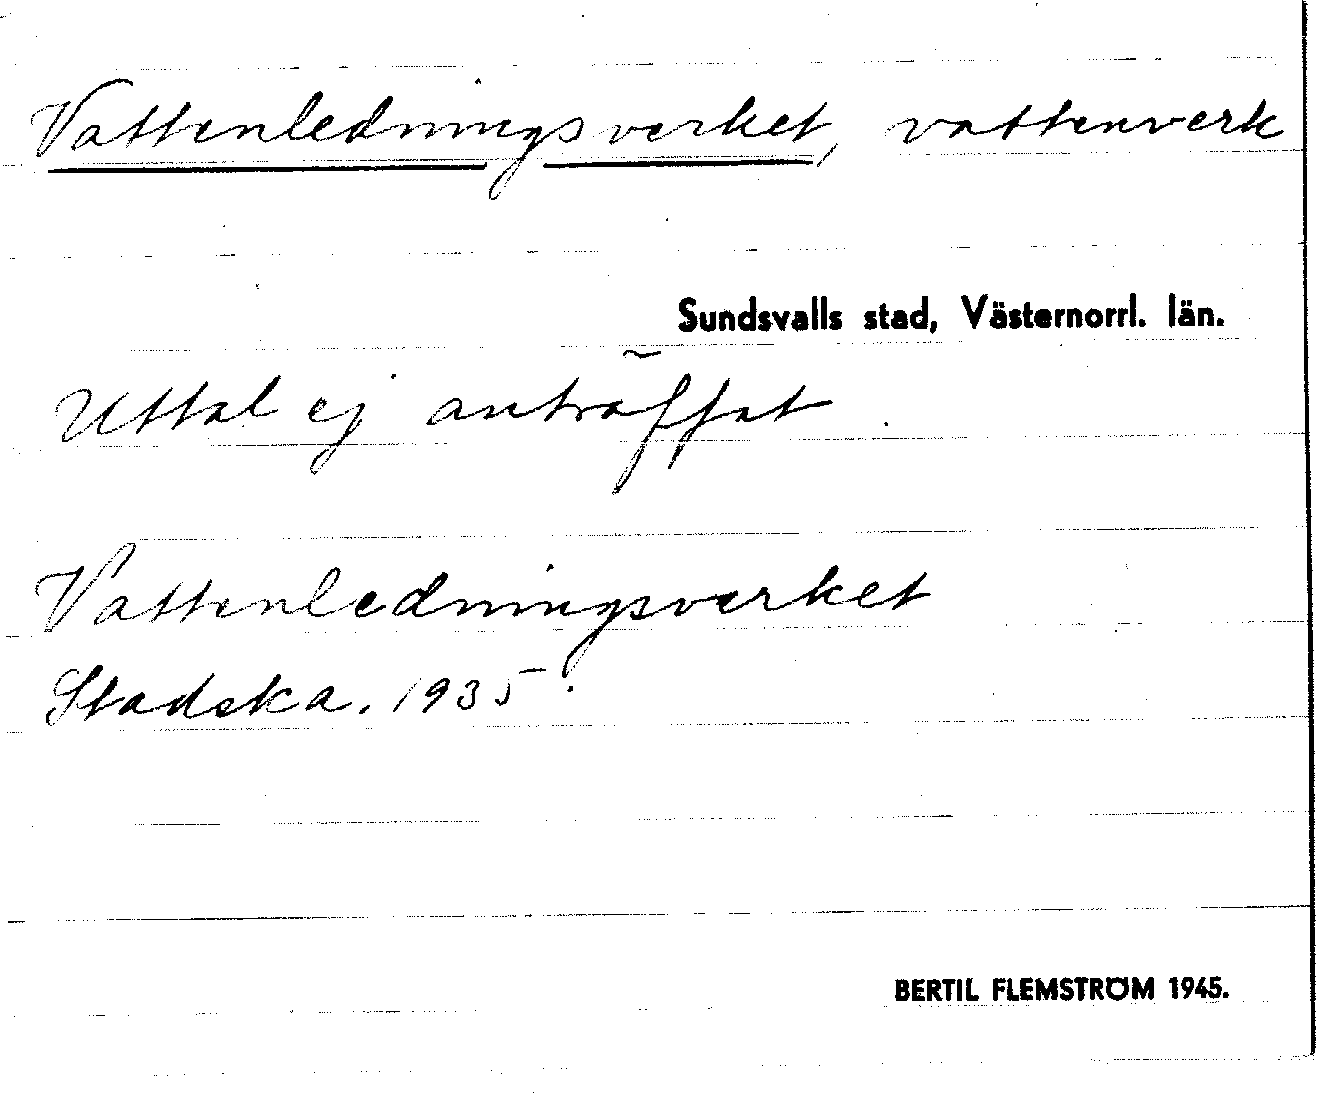 Vattenledningsverket, vattenverk
Sundsvalls stad, Västernorrl. län.
Uttal ej anträffat
Vattenledningsverket
Stadska. 1935.
BERTIL FLEMSTRÖM 1945.